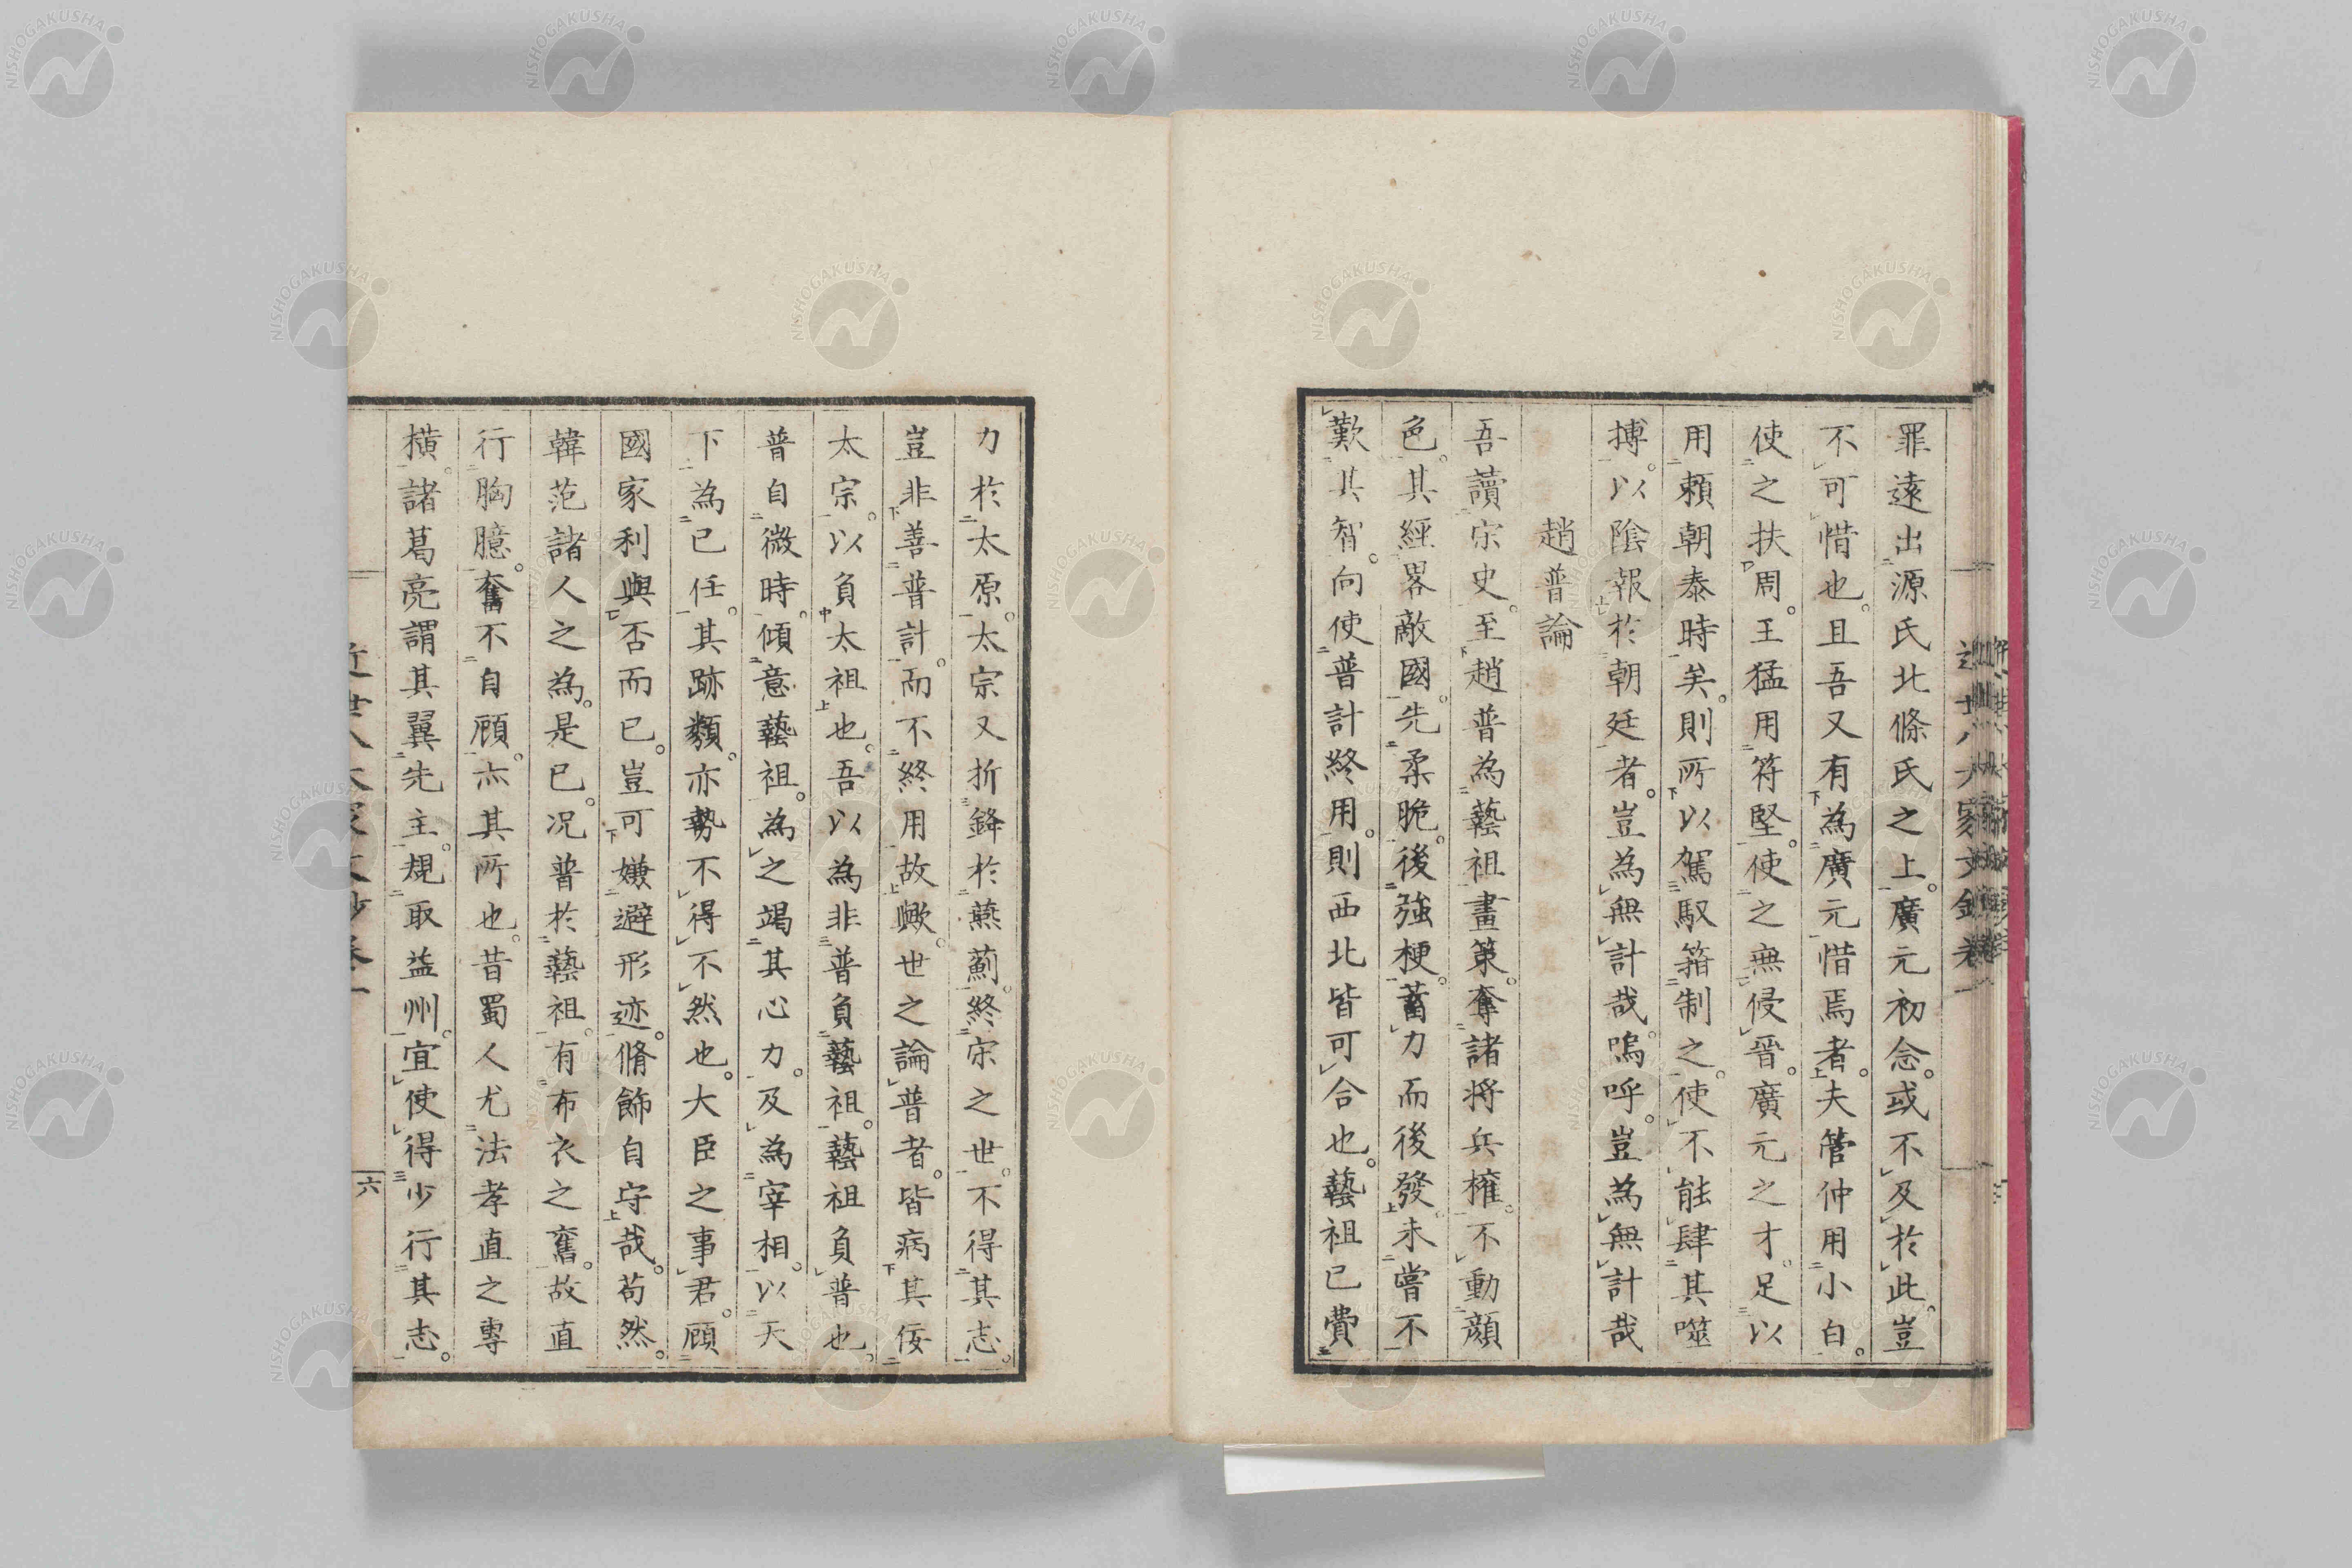 罪遠出源氏北條氏之上。廣元初念。或不及於此。豈
不可惜也。且吾又有為廣元惜焉者。夫管仲用小白。
使之扶周。王猛用符堅。使之無侵晉。廣元之才。足以
用賴朝泰時矣。則所以駕馭箝制之。使不能肆其噬
搏。以陰報於朝廷者。豈為無計哉。嗚呼。豈為無計哉
趙普論
吾讀宋史。至趙普為藝祖畫策。奪諸將兵權。不動顏
色。其經畧敵國。先柔脆。後強梗。蓄力而後發。未嘗不
歎其智。向使普計終用。則西北皆可合也。藝祖已費
力於太原。太宗又折鋒於燕薊。終宋之世。不得其志。
豈非善普計。而不終用故歟。世之論普者。皆病其佞
太宗。以負太祖也。吾以為非普負藝祖。藝祖負普也。
普自微時。傾意藝祖。為之竭其心力。及為宰相。以天
下為已任。其跡類。亦勢不得不然也。大臣之事君。顧
國家利與否而已。豈可嫌避形迹。脩飾自守哉。苟然。
韓范諸人之為。是已。况普於藝祖。有布衣之舊。故直
行胸臆。奮不自顧。亦其所也。昔蜀人尤法孝直之專
橫。諸葛亮謂其翼先主。規取益州。宜使得少行其志。
六